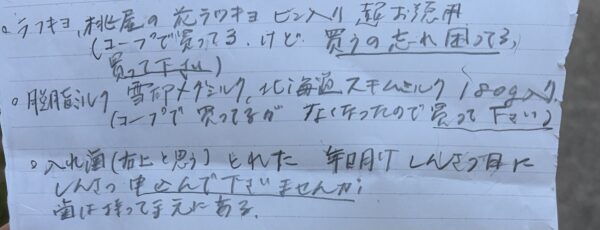 ○ラッキョ、桃屋の花ラッキョ ビン入り 超お徳用
(コープで買ってる、けど 買うの忘れ困ってる、
買って下さい)
○脱脂ミルク 雪印メグミルク、北海道スキムミルク 180g入り
(コープで買ってるが なくなったので買って下さい)
○入れ歯(右上と思う)とれた 年明け しんさつ日に
しんさつ申込んで下さいませんか
歯は持って手元にある。